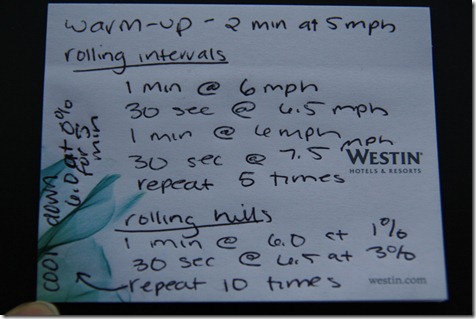 warm-up - 2 min at 5 mph
rolling intervals
1 min @ 6 mph
30 sec @ 6.5 mph
1 min @ 6 mph
30 sec @ 7.5 mph
repeat 5 times
WESTIN®
HOTELS & RESORTS
rolling hills
1 min @ 6.0 at 1%
30 sec @ 6.5 at 3%
repeat 10 times
westin.com
cool down
6.0 at 0%
for 3
min